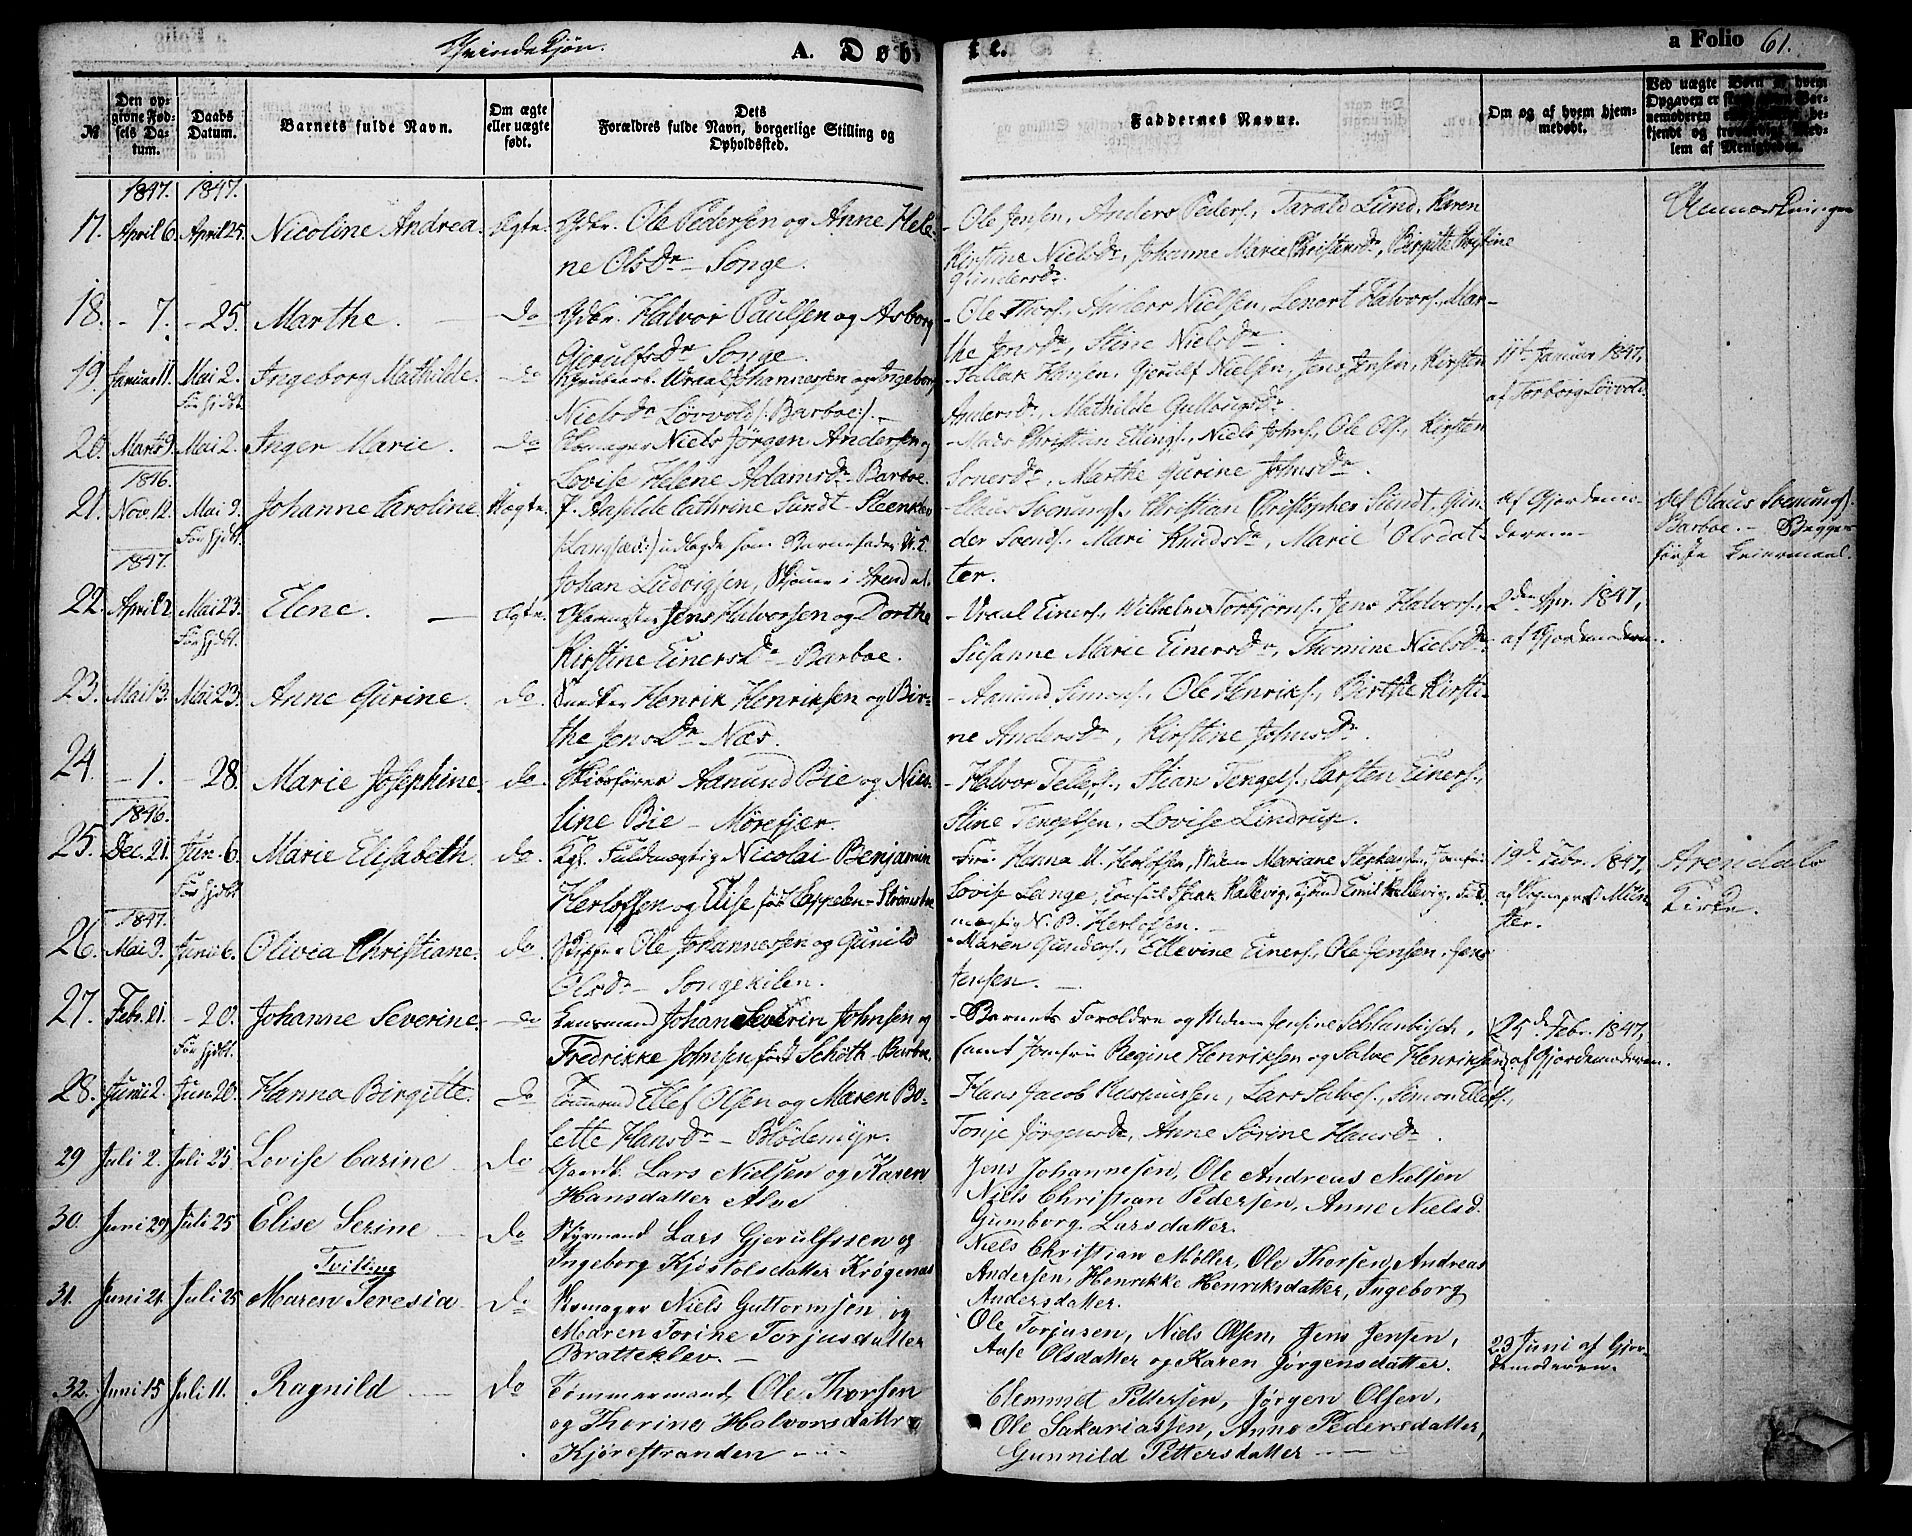 Qvindekjøn. A. Døbte. a Folio 61.
№ | Den opgivne Fødsels Datum. | Daabs Datum. | Barnets fulde Navn. | Om ægte eller uægte født. | Dets Forældres fulde Navn, borgerlige Stilling og Opholdssted. | Faddernes Navne. | Om og af hvem hjemmedøbt. | Ved uægte Børn af hvem Opgaven er
1847. 1847.
17. April 6. April 25. Nicoline Andrea. Ægte. Gdbr. Ole Pedersen og Anne Hele-
ne Olsdr - Songe.
- Ole Jensen, Anders Peders., Tarald Lund, Karen
Kirstine Nielsdr, Johanne Marie Christensdr, Birgitte Kirstine
Gundersdr.
Anmærkninger
18. - 7. - 25. Marthe. do Gdbr. Halvor Paulsen og Asborg
Gjerulfsdr Songe.
- Ole Thors., Anders Nielsen, Lenort Halvors., Mar-
the Jensdr, Stine Nielsdr.
19. Januar 11. Mai 2. Ingeborg Mathilde. do Uraal Johannessen og Ingeborg
Før hjdbt.
Nielsdr Lørvold /: Barboe :/. -
- Tallak Hansen, Gjerulf Nielsen, Jens Jensen, Kirsten
Andersdr, Mathilde
11te Januar 1847,
af Torborg Lørvold.
20. Marts 9. Mai 2. Inger Marie. do Niels Jørgen Andersen og
Lovise Helene Adamsdr - Barboe.
- Mads Christian Ellings., Niels Johns., Ole Ols., Kirsten
Marthe Gurine Johnsdr.
1846.
21. Nov. 12. Mai 9. Johanne Caroline. Uægte. P. Aasilde Cathrine Sundt - Steenklev
Før hjdbt.
/:Langsæe:/ udlagde som Barnefader U. K.
Johan Ludvigsen, i Arendal.
- Claus Svenungs., Christian Christopher Sundt, Gun-
der Svends., Mari Knudsdr, Marie Olsdat-
ter.
af Gjordemo-
deren.
Af Olaus Svenungs.
Barboe. - Begges
første Leiermaal.
1847.
22. April 2. Mai 23. Elene. Ægte. Jens Halvorsen og Dorthe
Før hjdbt.
Kirstine Einersdr - Barboe.
- Uraal Einers., Wilhelm Torbjørns., Jens Halvors.,
Susanne Marie Einersdr, Thomine Nielsdr.
2den Apr. 1847,
af Gjordemoderen.
23. Mai 3. Mai 23. Anne Gurine. do. Henrik Henriksen og Bir-
the Jensdr Næs.
- Amund Simons., Ole Henriks., Birthe Kirsti-
ne Andersdr, Kirstine Johnsdr.
24. - 1. - 28. Marie Josephine. do. Skibsfører Aamund Bie og Nico-
line Bie - Mørefjær.
- Halvor Tellefs., Stian Tengels., Carsten Einers.,
Stine Tengelsen, Lovise Lindrup.
1846.
25. Dec. 21. Jun. 6. Marie Elisabeth. do. Kgl. Fuldmægtig Nicolai Benjamin
Før hjdbt.
Herlofsen og Elise født Cappelen - Strømsboe
Fru Hanna M. Herlofsen, Mariane Stephansen, Jomfru
Lovise Lange, Consul Isaak Kallevig, Emil Kallevig, Fuld-
mægtig N. B. Herlofsen.
19de Febr. 1847,
Mün-
ster.
Arendals
Kirke.
1847.
26. Mai 9. Juni 6. Olivia Christiane. do. Skipper Ole Johannessen og Gunild
Olsdr - Songekilen.
- Maren Gunders., Ellevine Einers., Ole Jensen, Jens
Jensen. -
27. Febr. 21. - 20. Johanne Severine. do Lensmand Johan Severin Johnsen og
Før hjdbt.
Fredrikke Johnsen født Schøth - Barboe.
- Barnets Forældre og Jensine Schlanbusch,
samt Jomfru Regine Henriksen og Salve Henriksen,
25de Febr. 1847,
af Gjordemoderen.
28. Juni 2. Juni 20. Hanna Birgitte. do Tømmermd Ellef Olsen og Maren Bo-
lette Hansdr - Blödemyr.
Hans Jacob Rasmussen, Lars Salves., Simon Ellefs.,
Tonje Jørgensdr, Anne Sørine Hansdr.
29 Juli 2. Juli 25 Lovise Carine - do Gaardb. Lars Nielsen og Karen
Hansdatter Alve
Jens Johannesen, Ole Andreas Nielsen
Niels Christian Pedersen, Anne Nielsd.
Gumborg Larsdatter.
30. Juni 29, Juli 25 Elise Serine - do Styrmand Lars Gjerulfssen og
Ingeborg Kjøstolsdatter Krøgenæs
Niels Christian Møller, Ole Thorsen, Andreas
Andersen, Henrikke Henriksdatter, Ingeborg
Andersdatter.
Tvilling
31. Juni 21. Juli 25 Maren Teresia. do Skomager Niels Guttormsen og
Maren Torine Torjusdatter
Bratteklev. -
Ole Torjusen, Niels Olsen, Jens Jensen,
Aase Olsdatter og Karen Jørgensdatter.
23 Juni af Gjor-
demoderen.
32. Juni 15 Juli 11. Ragnild - do Tømmermand, Ole Thorsen
og Thorine Halvorsdatter
Kjørestranden
Clemmet Pettersen, Jørgen Olsen,
Ole Sakariassen, Anne Pedersdatter,
Gunnild Pettersdatter